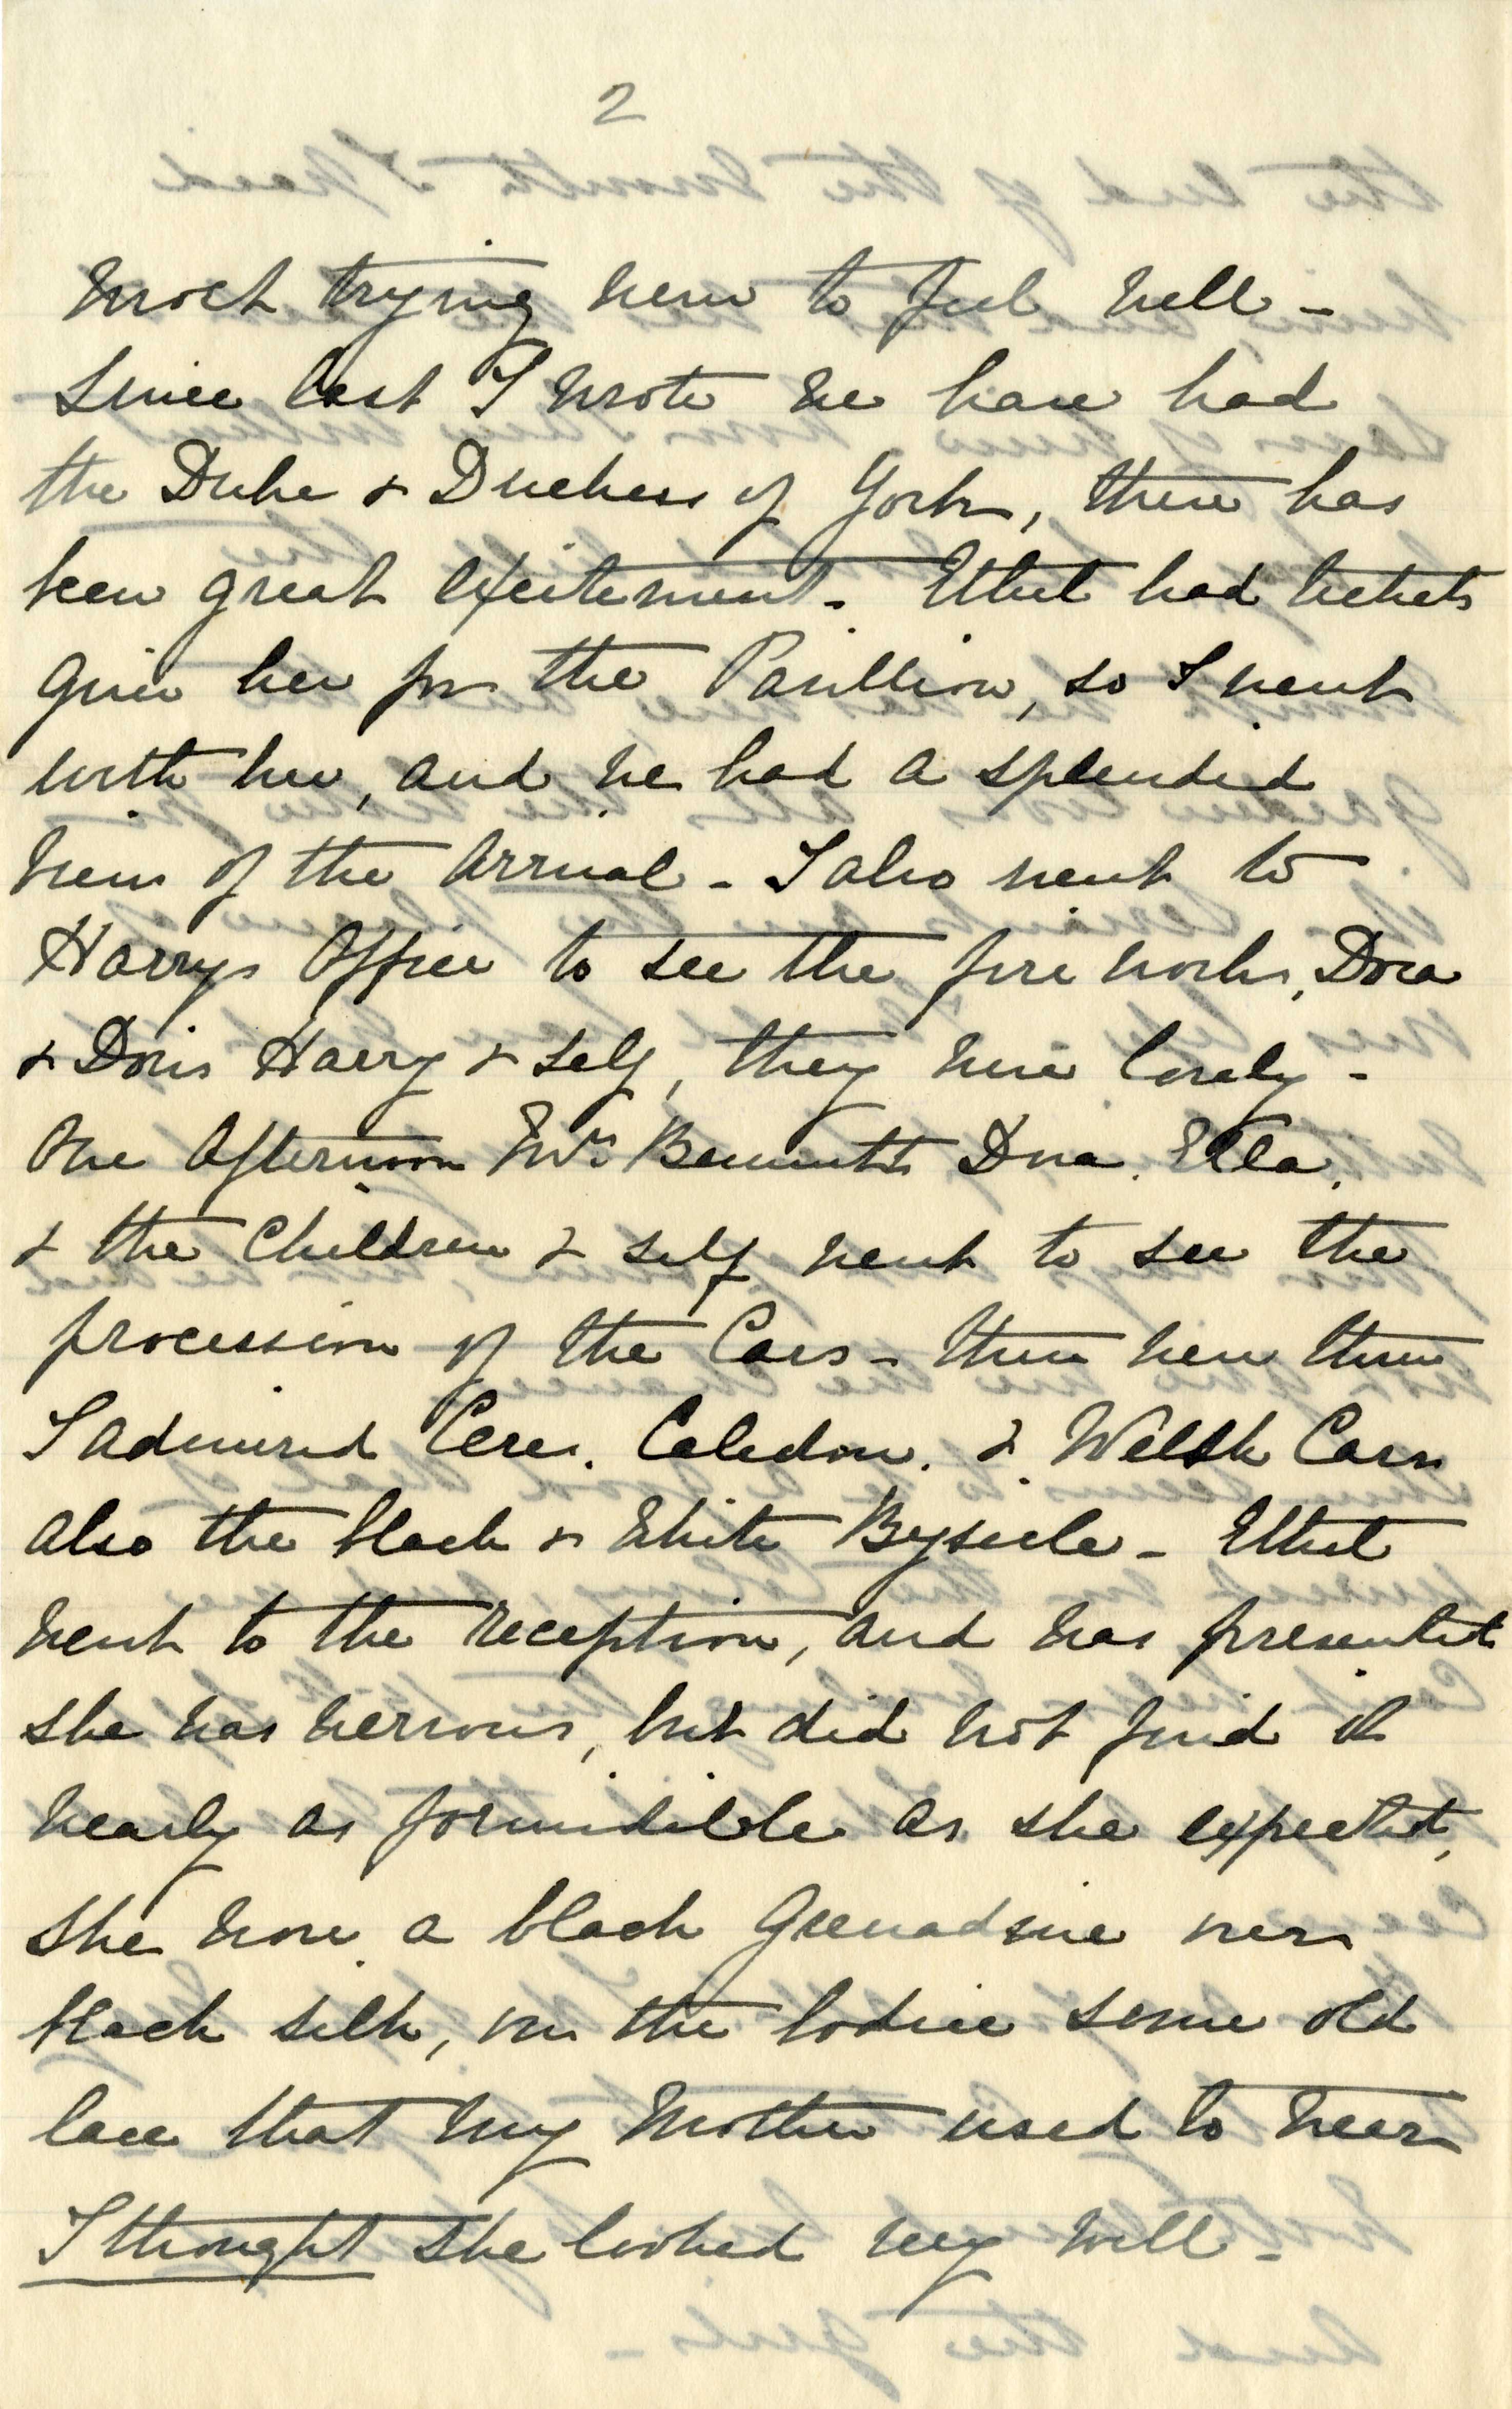 2
most trying new to feel well -
Since last I wrote we have had
the Duke & Duchess of York, there has
been great excitement - Ethel had tickets
given her for the Pavillion, so I went
with her, and we had a splended
view of the arrival - I also went to
Harrys Office to see the fire works, Dora
& Doris Harry & self, they were lovely -
One afternoon Mrs Bennetts Dora. Ella.
& the Children & self went to see the
procession of the Cars - then were three
I admired Ceres. Caledon. & Welsh Cars
also the black & white Byscele - Ethel
went to the reception, and was presented
she was nervous, but did not find it
nearly as formidible as she expected,
She wore a black Grenadine over
black silk, on the bodice some old
lace that my Mother used to wear
I thought she looked very well -